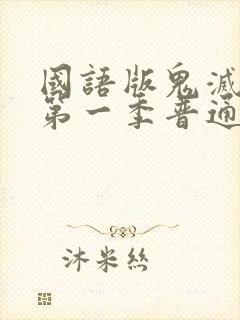 國語版鬼滅
第一季普通
沐米絲